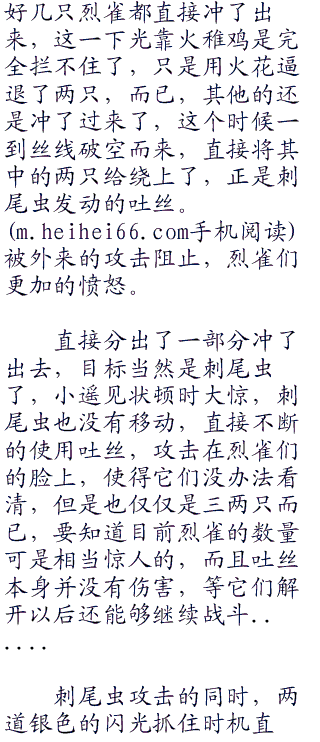 好几只烈雀都直接冲了出
来，这一下光靠火稚鸡是完
全拦不住了，只是用火花逼
退了两只，而已，其他的还
是冲了过来了，这个时候一
到丝线破空而来，直接将其
中的两只给绕上了，正是刺
尾虫发动的吐丝。
(m.heihei66.com手机阅读)
被外来的攻击阻止，烈雀们
更加的愤怒。
直接分出了一部分冲了
出去，目标当然是刺尾虫
了，小遥见状顿时大惊，刺
尾虫也没有移动，直接不断
的使用吐丝，攻击在烈雀们
的脸上，使得它们没办法看
清，但是也仅仅是三两只而
已，要知道目前烈雀的数量
可是相当惊人的，而且吐丝
本身并没有伤害，等它们解
开以后还能够继续战斗..
....
刺尾虫攻击的同时，两
道银色的闪光抓住时机直